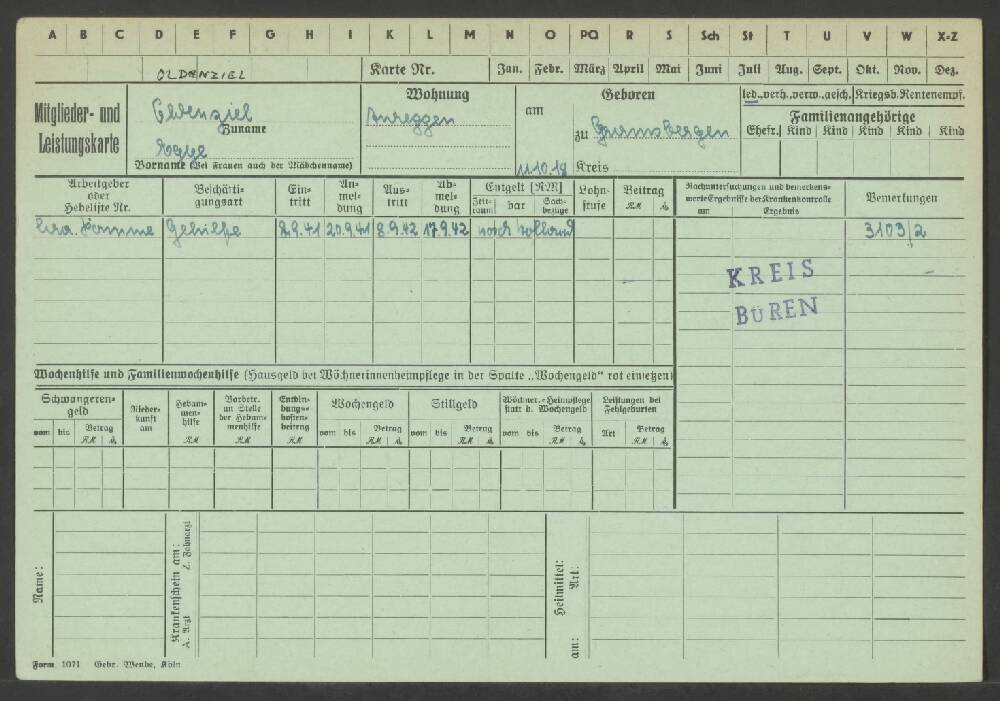 A B C D E F G H I K L M N O PQ R S Sch St T U V W X-Z
OLDENZIEL Karte Nr. Jan. Febr. März April Mai Juni Juli Aug. Sept. Okt. Nov. Dez.
Mitglieder- und Leistungskarte
Eldenziel
Zuname
Vorname (Bei Frauen auch der Mädchenname)
Wohnung
Anreggen
Geboren
am 11.10.18
zu Gramsbergen
Kreis
led., verh., verw., gesch., Kriegsb. Rentenempf.
Familienangehörige
Ehefr. Kind Kind Kind Kind Kind
Arbeitgeber oder Hebeliste Nr.
Beschäftigungsart
Eintritt
Anmeldung
Austritt
Abmeldung
Entgelt [RM]
Zeitraum bar Sachbezüge
Lohnstufe
Beitrag
RM
Nachuntersuchungen und bemerkenswerte Ergebnisse der Krankenkontrolle
am Ergebnis
Bemerkungen
Gehilfe 2.9.41 20.9.41 8.9.42 17.9.42 nach Holland 3103/2
KREIS
BÜREN
Wochenhilfe und Familienwochenhilfe (Hausgeld bei Wöchnerinnenheimpflege in der Spalte „Wochengeld" rot einsetzen)
Schwangerengeld
vom bis Betrag RM
Niederkunft am
Hebammenhilfe RM
Barbetr. an Stelle der Hebammenhilfe RM
Entbindungskostenbeitrag RM
Wochengeld
vom bis Betrag RM
Stillgeld
vom bis Betrag RM
Wöchner.-Heimpflege statt d. Wochengeld
vom bis Betrag RM
Leistungen bei Fehlgeburten
Art Betrag RM
Name:
Krankenschein am:
A. Arzt Z. Zahnarzt
Heilmittel:
am: Art:
Form. 1071 Gebr. Wende, Köln